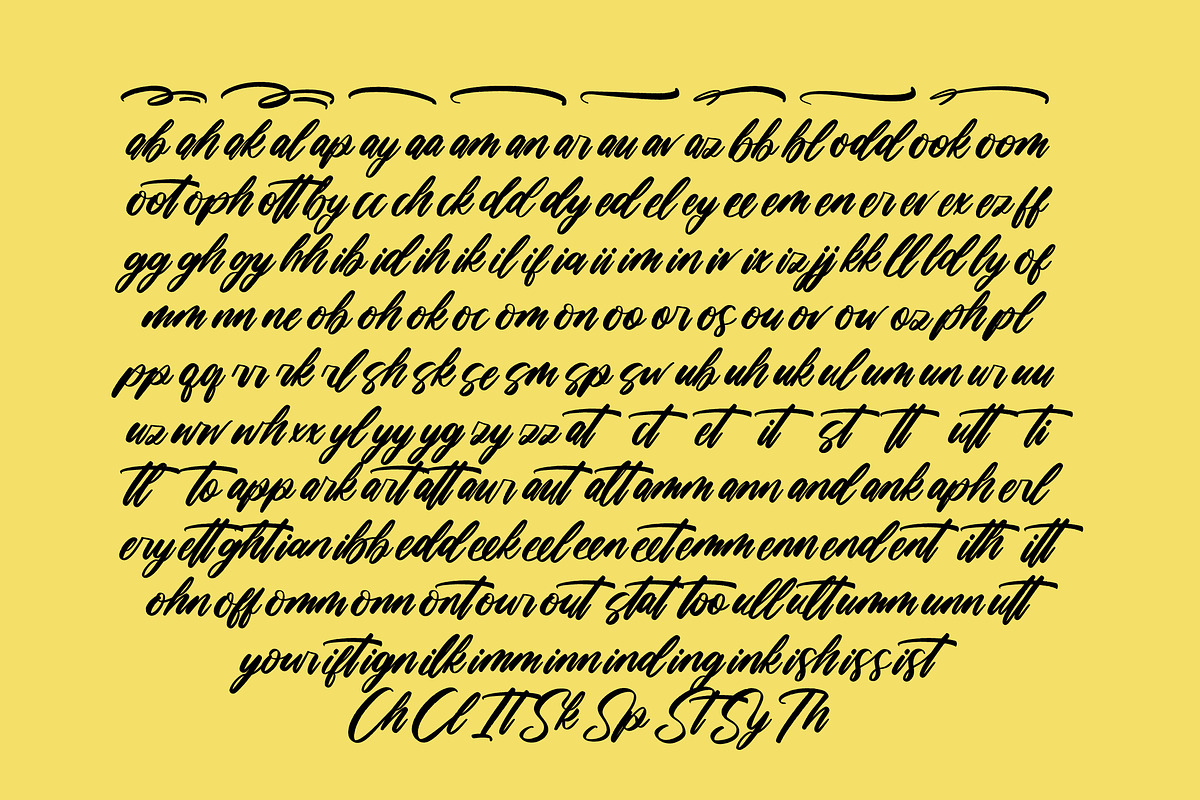 ab ah ak al ap ay aa am an ar au av az bb bl odd ook oom
oot oph ott by cc ch ck dd dy ed el ey ee em en er ev ex ez ff
gg gh gy hh ib id ih ik il if ia ii im in iv ix iz jj kk ll ld ly of
mm nn ne ob oh ok oc om on oo or os ou ov ow oz ph pl
pp qq rr rk rl sh sk se sm sp sw ub uh uk ul um un ur uu
uz ww wh xx yl yy yg zy zz at ct et it st tt utt ti
tl to app ark art att aur aut alt amm ann and ank aph erl
ery ett ght ian ibb edd eek eel een eet emm enn end ent ith itt
ohn off omm onn ont our out stat too ull ult umm unn utt
your ift ign ilk imm inn ind ing ink ish iss ist
Ch Cl It Sk Sp St Sy Th